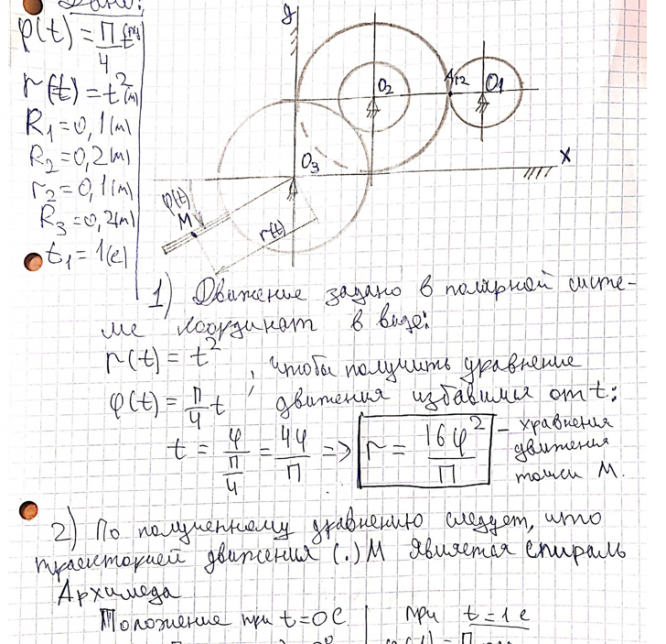 Дано:
φ(t) = П/4 t (рад)
r(t) = t² (м)
R₁ = 0,1 (м)
R₂ = 0,2 (м)
r₂ = 0,1 (м)
R₃ = 0,2 (м)
t₁ = 1 (с)
y
O₂
A₁₂
O₁
x
O₃
φ(t)
M
r(t)
1) Движение задано в полярной систе-
ме координат в виде:
r(t) = t²
φ(t) = П/4 t , чтобы получить уравнение
движения избавимся от t:
t = φ/(П/4) = 4φ/П => r = 16φ²/П – уравнения
движения
точки M.
2) По полученному уравнению следует, что
траекторией движения (.) M является спираль
Архимеда
Положение при t=0 с | при t = 1 с